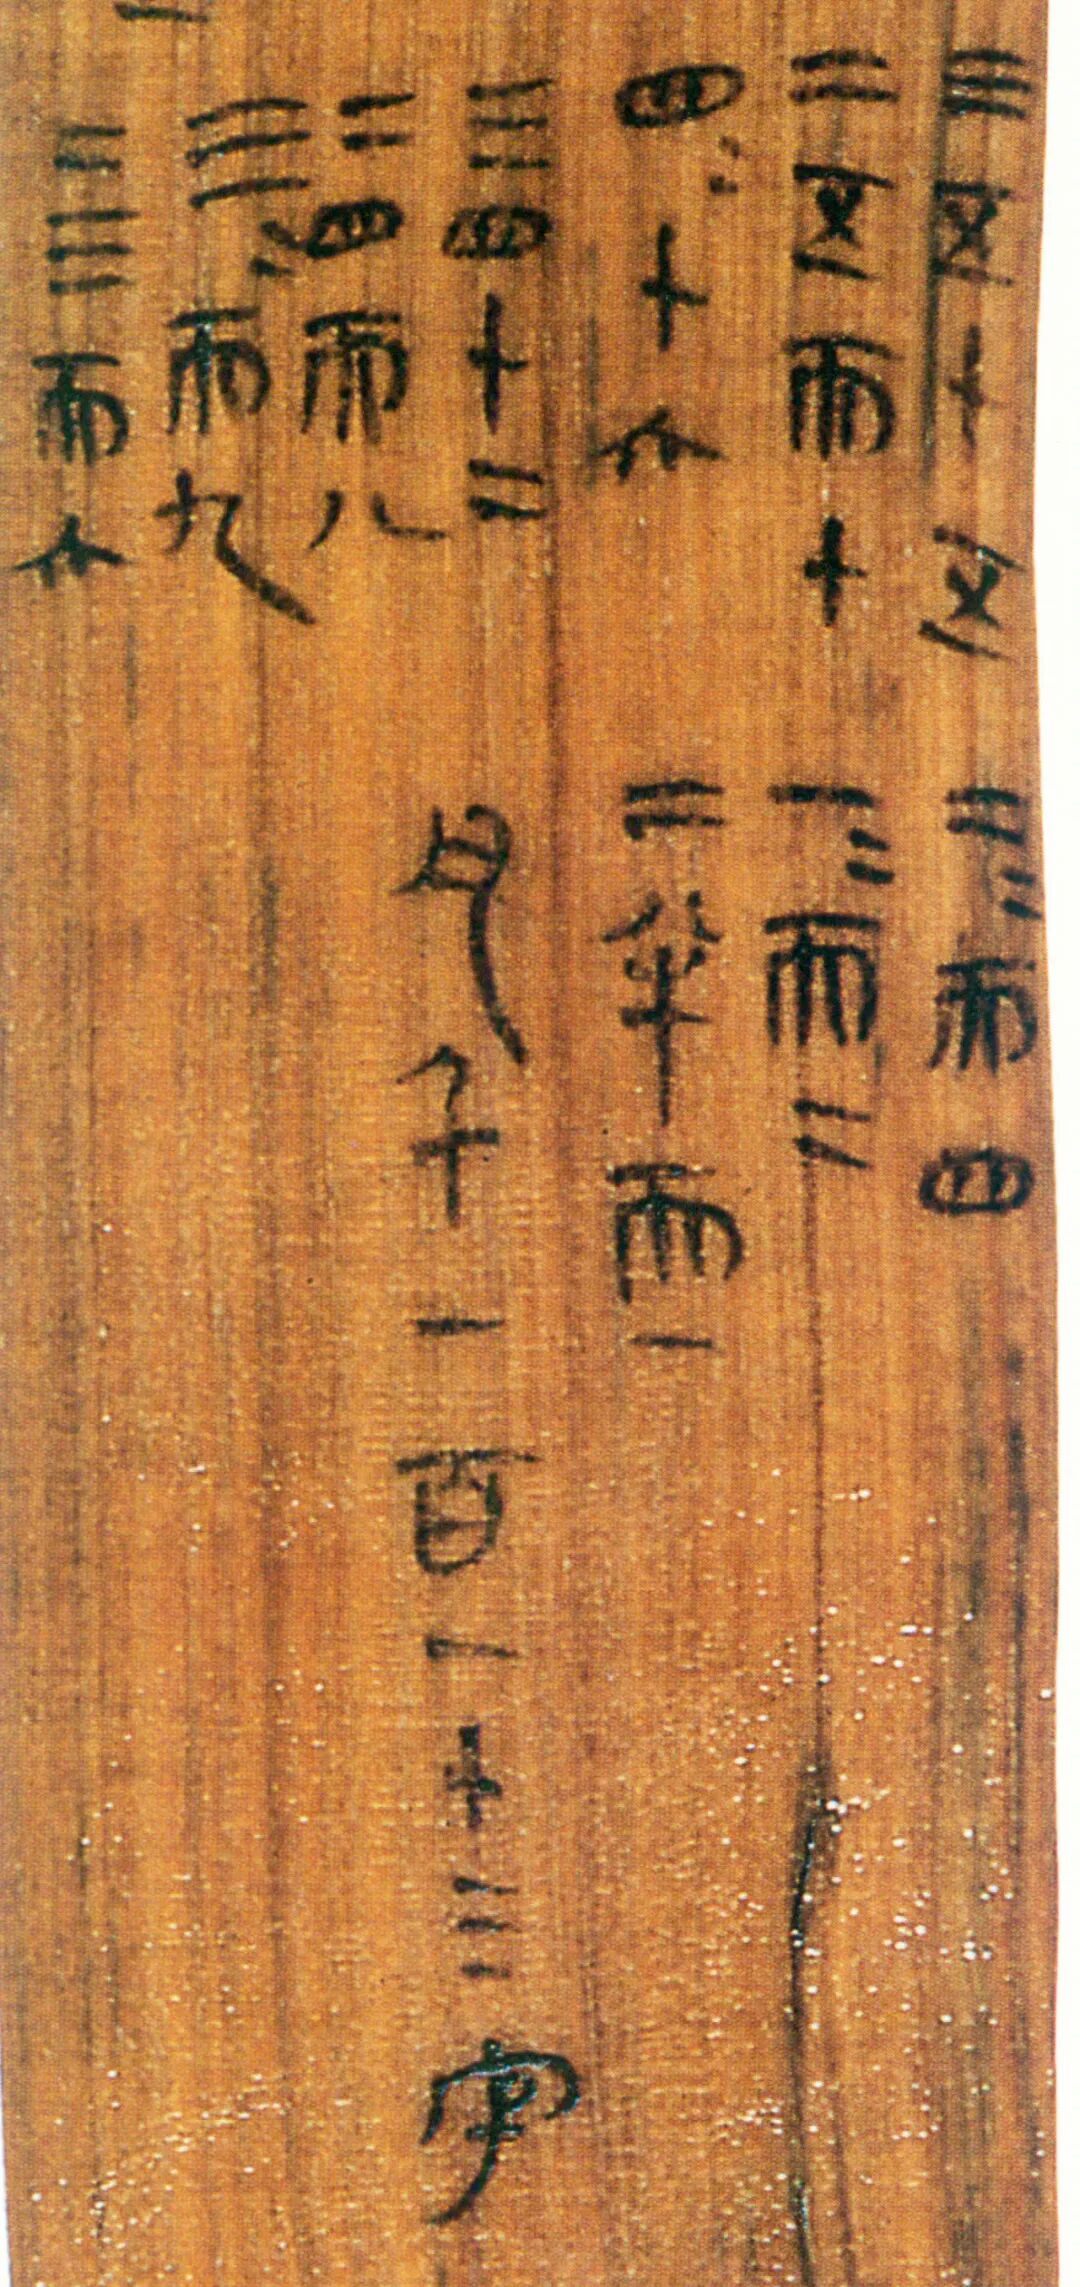 三五十五
二五而十
四=十六
三四十二
二四而八
三=而九
二三而六
二=而四
一=而二
二半而一
凡千一百一十三字